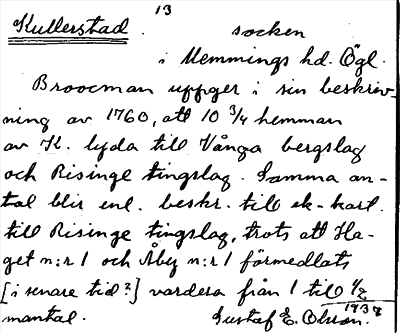 13
Kullerstad. socken
i Memmings hd. Ögl.
Broocman uppger i sin beskriv-
ning av 1760, att 10 3/4 hemman
av K. lyda till Vånga bergslag
och Risinge tingslag. Samma an-
tal blir enl. beskr. till ek-kart.
till Risinge tingslag, trots att Ha-
get n:r 1 och Åby n:r 1 förmedlats
[i senare tid?] vardera från 1 till 1/2
mantal. Gustaf E. Olsson.